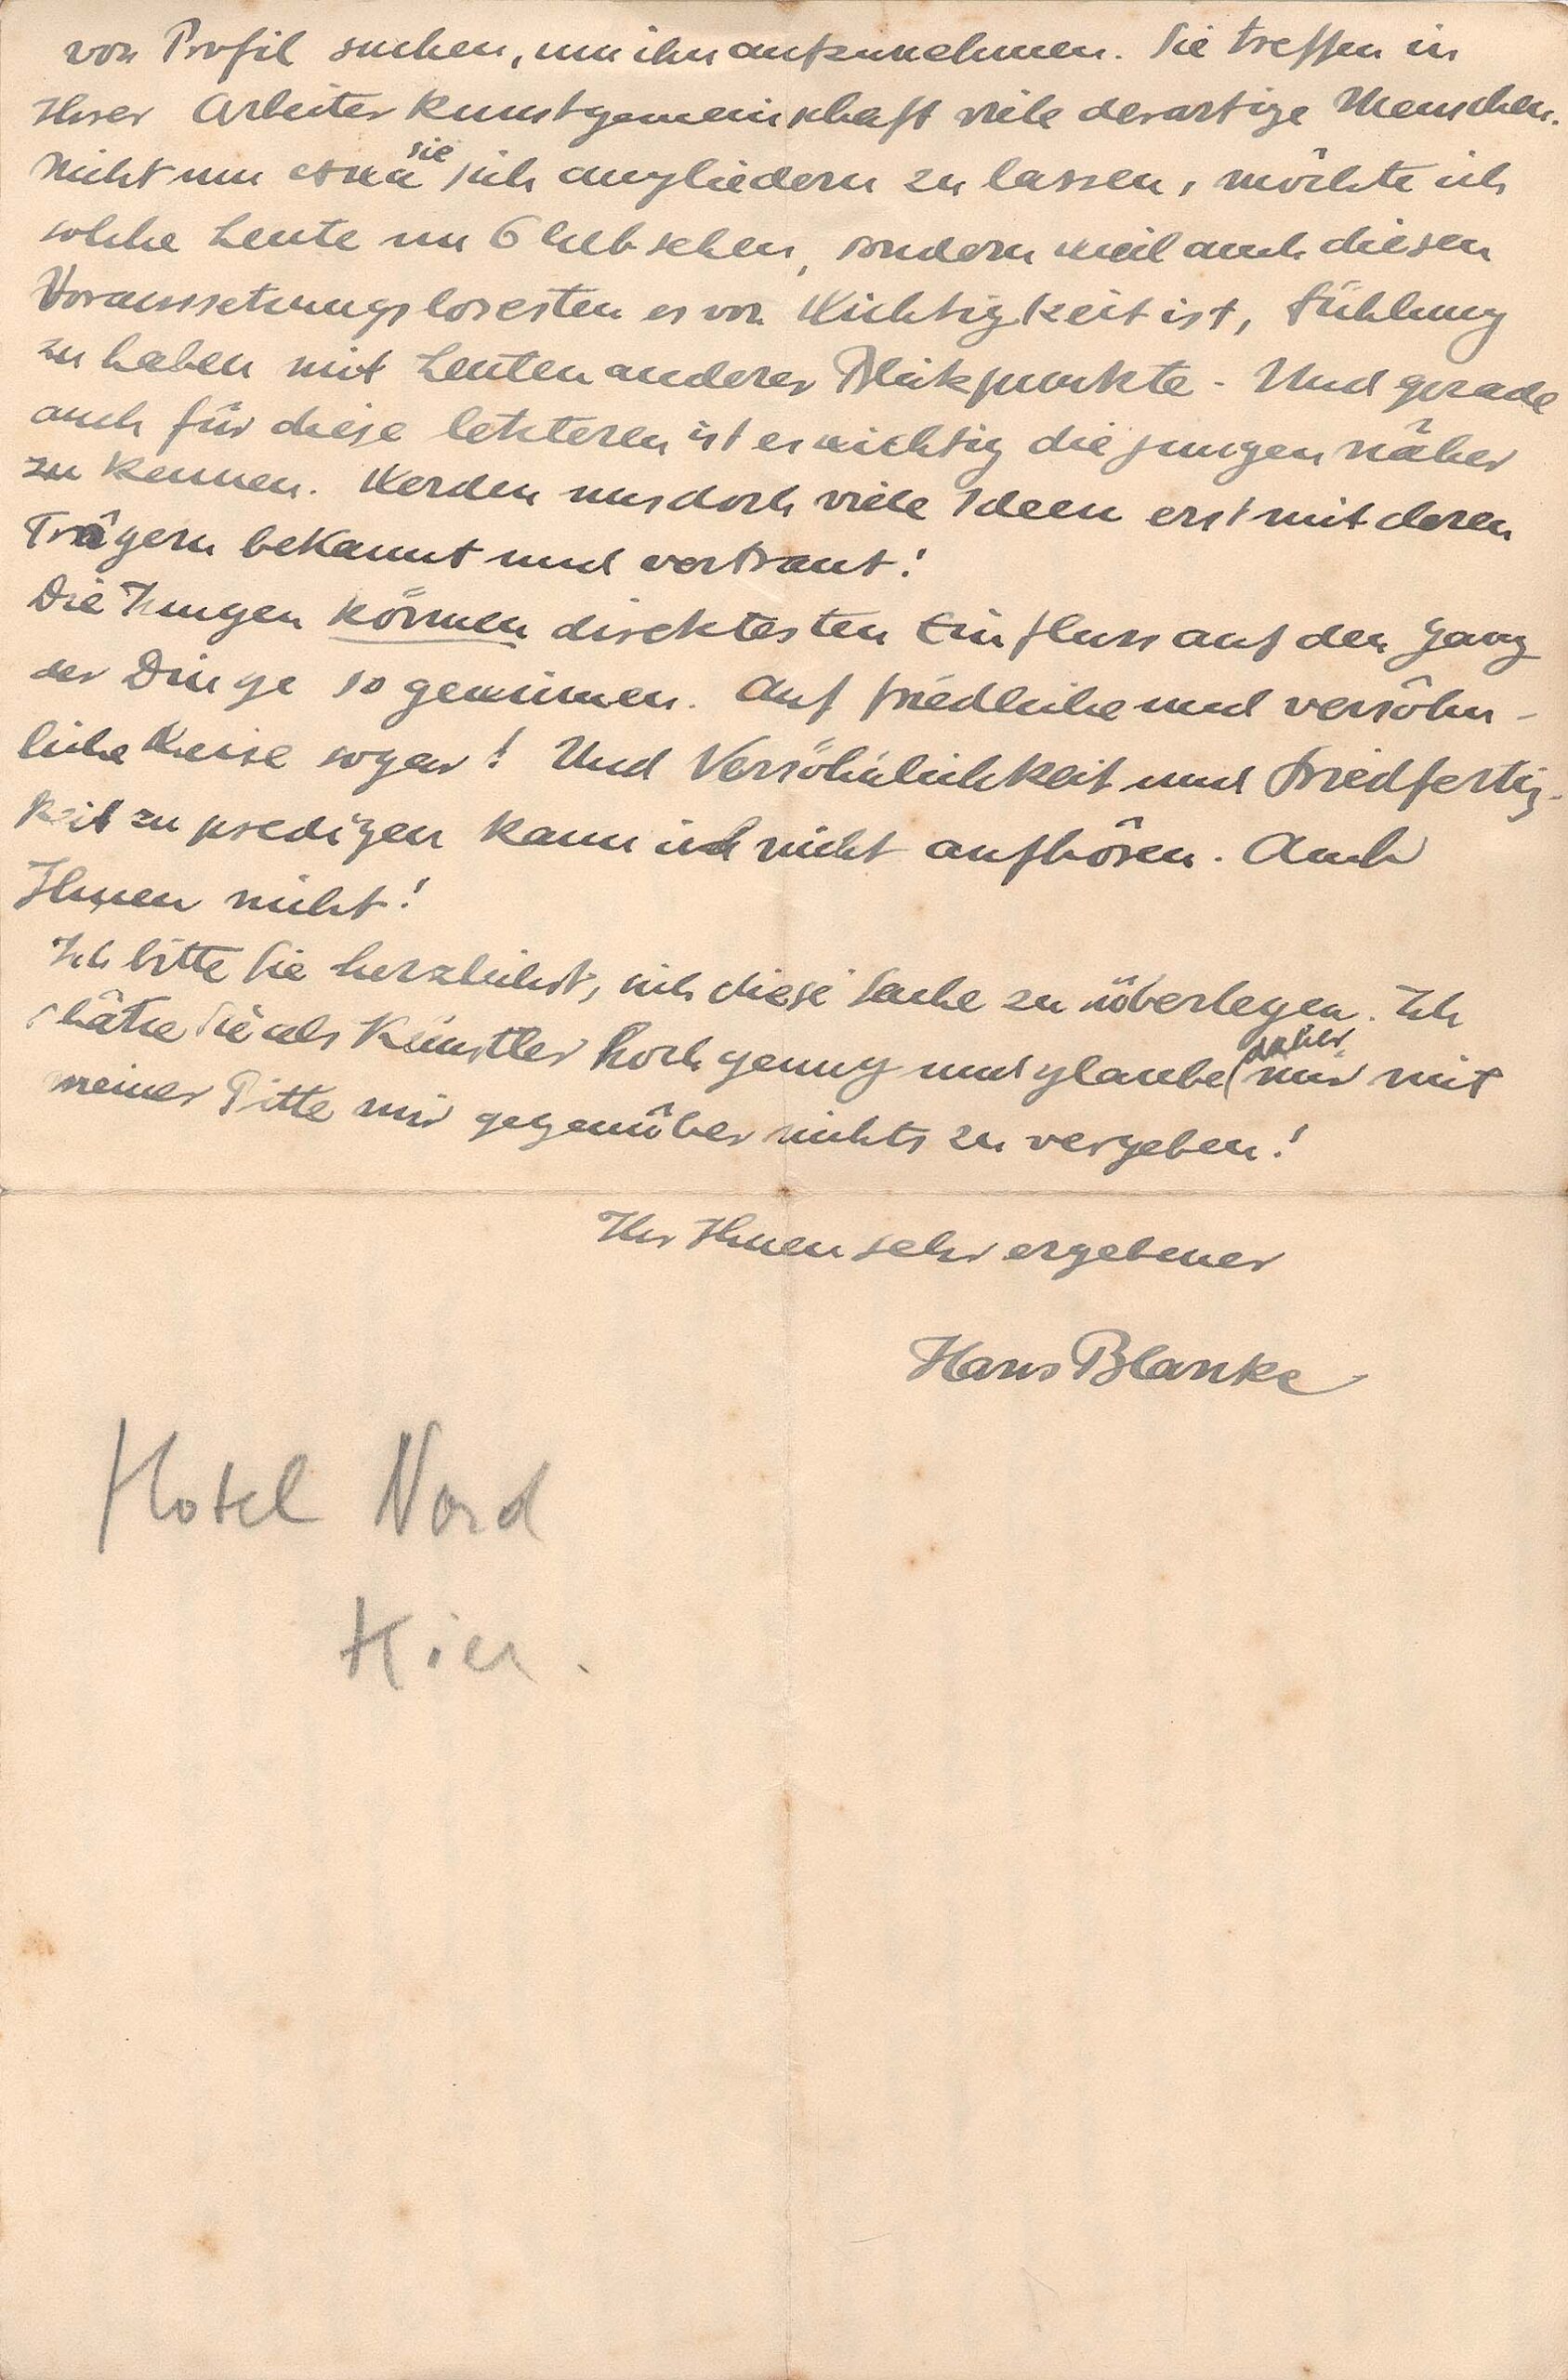 von Profil suchen, um ihn aufzunehmen. Sie treffen in
Ihrer Arbeiterkunstgemeinschaft viele derartige Menschen.
Nicht um etwa sie sich angliedern zu lassen, möchte ich
solche Leute im Club sehen, sondern weil auch diesen
Voraussetzungslosesten es von Wichtigkeit ist, Fühlung
zu haben mit Leuten anderer Blickpunkte. Und gerade
auch für diese letzteren ist es wichtig die Jungen näher
zu kennen. Werden uns doch viele Ideen erst mit deren
Trägern bekannt und vertraut!
Die Jungen können direktesten Einfluss auf den Gang
der Dinge so gewinnen. Auf friedliche und versöhn-
liche Weise sogar! Und Versöhnlichkeit und Friedfertig-
keit zu predigen kann ich nicht aufhören. Auch
Ihnen nicht!
Ich bitte Sie herzlichst, sich diese Sache zu überlegen. Ich
schätze Sie als Künstler hoch genug und glaube daher mir mit
meiner Bitte mir gegenüber nichts zu vergeben!
Ihr Ihnen sehr ergebener
Hans Blanke
Hotel Nord
Hier.